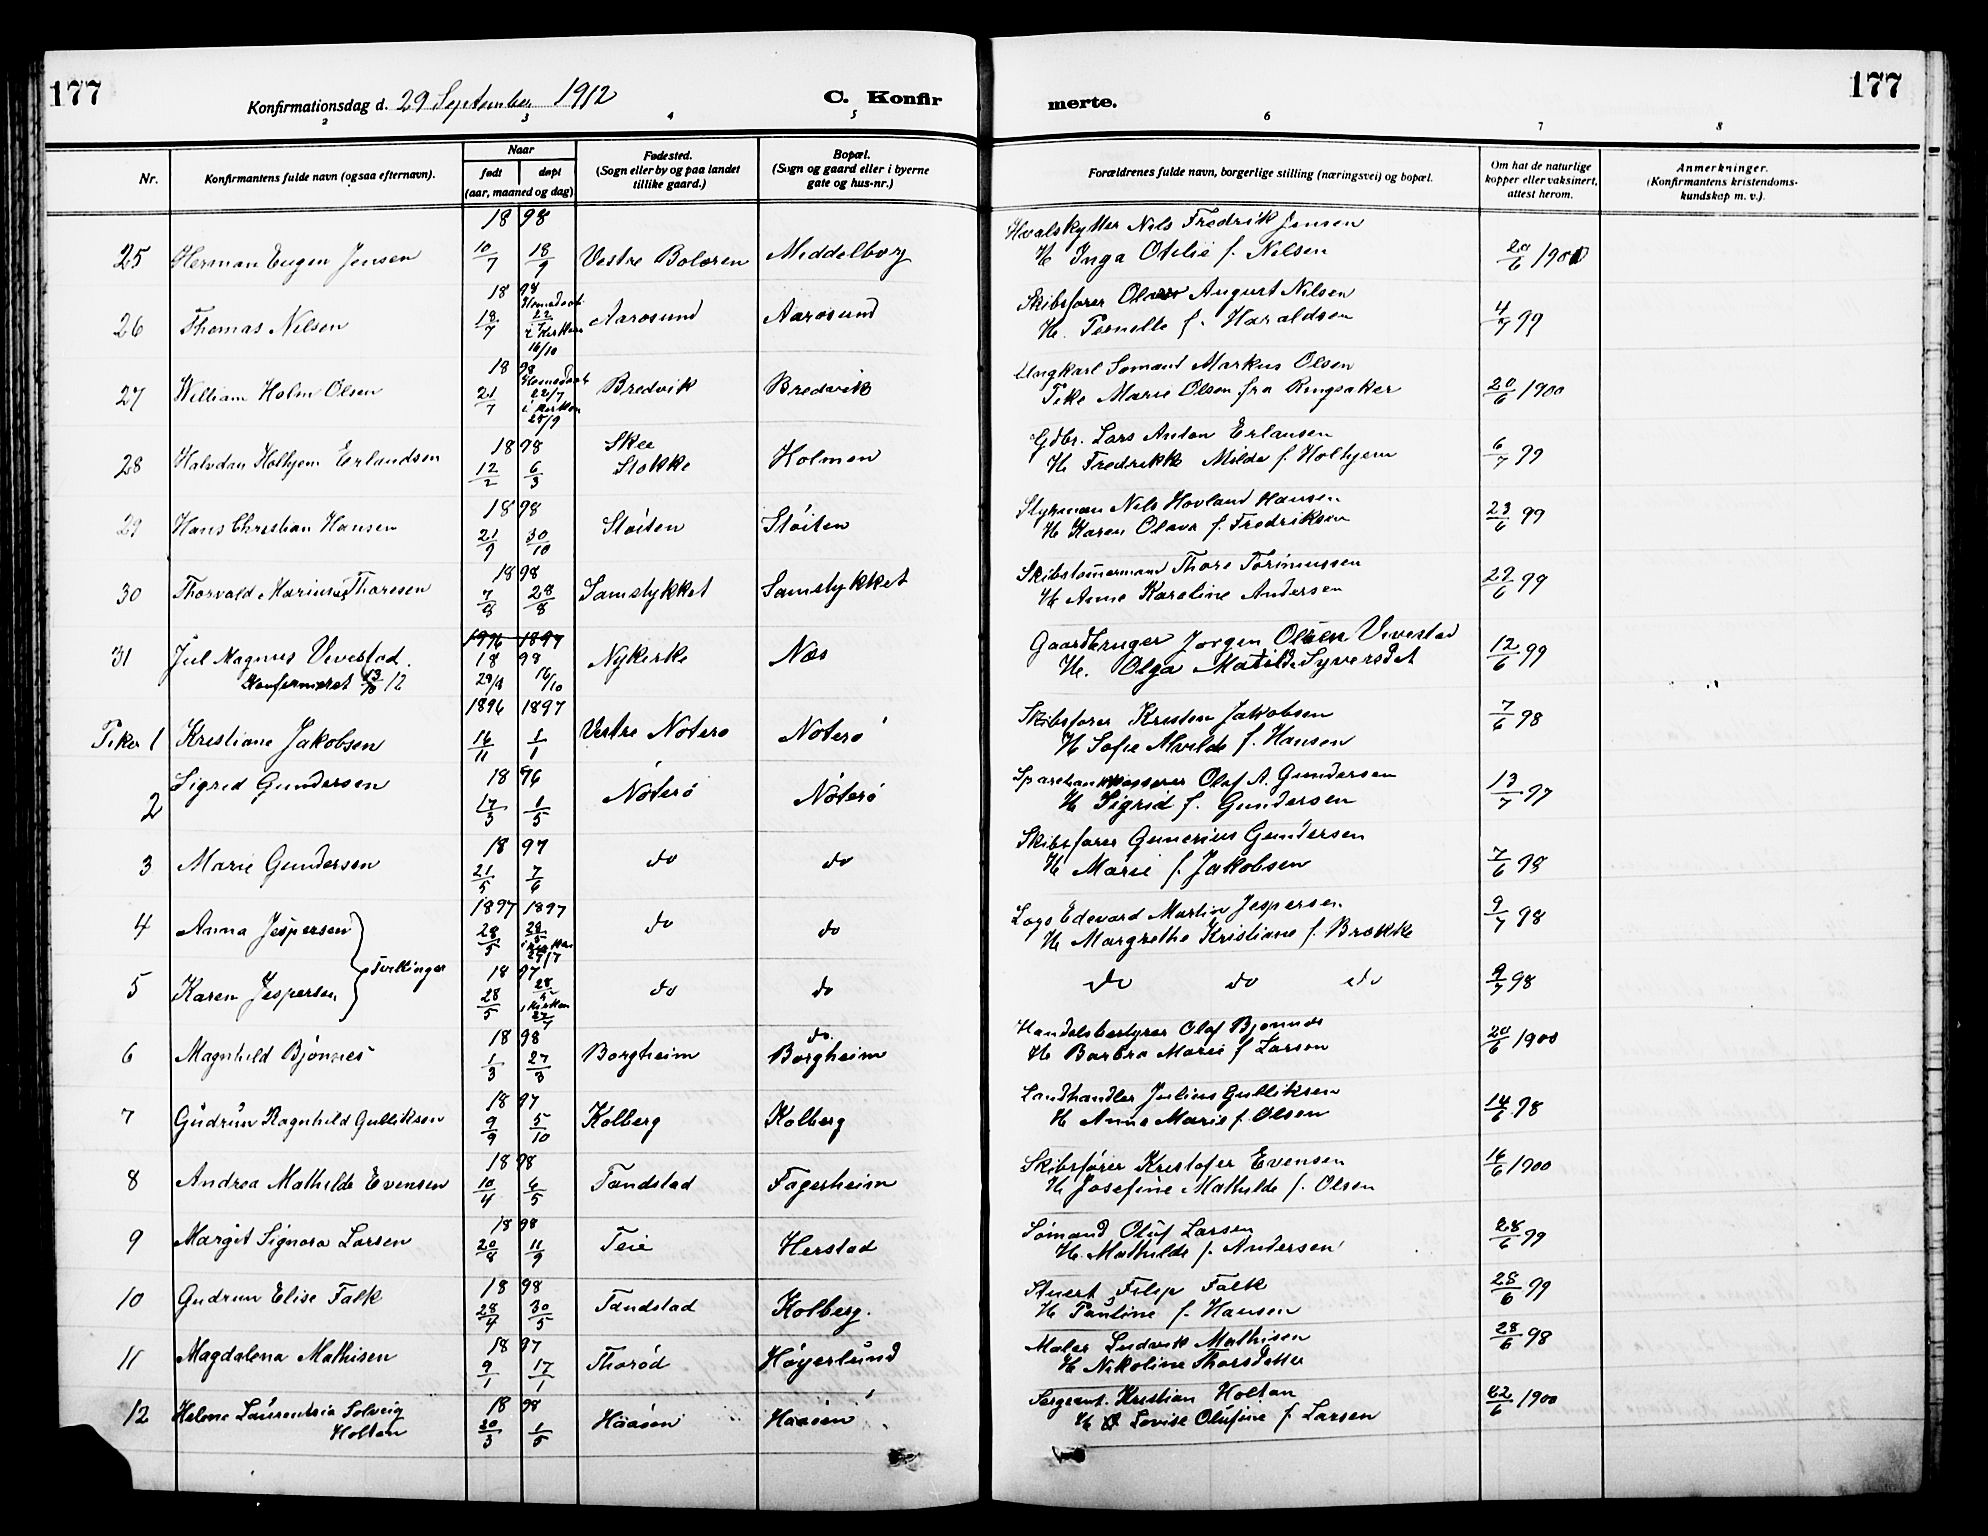 177
Konfirmationsdag d. 29 September 1912
C. Konfir
merte.
177
2 3 4 5 6 7 8
Nr.
Konfirmantens fulde navn (ogsaa efternavn).
Naar
født døpt
(aar, maaned og dag).
Fødested.
(Sogn eller by og paa landet
tillike gaard.)
Bopæl.
(Sogn og gaard eller i byerne
gate og hus-nr.)
Forældrenes fulde navn, borgerlige stilling (næringsvei) og bopæl.
Om hat de naturlige
kopper eller vaksinert,
attest herom.
Anmerkninger.
(Konfirmantens kristendoms-
kundskap m. v.)
18 98
25 Herman Eugen Jensen 10/7 18/9 Vestre Bolæren Middelborg
Hvalskytter Nils Fredrik Jensen
H. Inga Otilie f. Nilsen 20/6 1900
18 98
26 Thomas Nilsen 18/7 Hjemedøbt 22/7 i Kirken 16/10 Aarøsund Aarøsund
Skibsfører August Nilsen
H. Pernelle f. Haraldsen 4/7 99
18 98
27 William Holm Olsen 21/7 Hjemedøbt 22/7 i Kirken 25/9 Bredvik Bredvik
Ungkarl Sømand Markus Olsen
Pike Marie Olsen fra Ringsaker 20/6 1900
18 98
28 Halvdan Holhjem Erlandsen 12/2 6/3 Skee Stokke Holmen
Gdbr. Lars Anton Erlansen
H. Fredrikke Milda f. Holhjem 6/7 99
18 98
29 Hans Christian Hansen 21/9 30/10 Støiten Støiten
Styrman Nils Hovland Hansen
H. Karen Olava f. Fredriksen 23/6 99
18 98
30 Thorvald Marius Thoresen 7/8 28/8 Samstykket Samstykket
Skibstømermand Thore
H. Anne Karoline Andersen 29/6 99
1896 1897
31 Jul Magnus Vivestad. 18 98
Konfirmeret 13/10 12 29/8 16/10 Nykirke Næs
Gaardbruger Jørgen Olsen Vivestad
H. Olga Matilde Syversdat 12/6 99
1896 1897
Piker 1 Kristiane Jakobsen 16/11 1/1 Vestre Nøterø Nøterø
Skibsfører Kristen Jakobsen
H. Sofie Alvilde f. Hansen 7/6 98
18 96
2 Sigrid Gundersen 17/3 1/5 Nøterø Nøterø
Sparebankkasserer Olaf A. Gundersen
H. Sigrid f. Gundersen 13/7 97
18 97
3 Marie Gundersen 21/5 7/6 do do
Skibsfører Gunerius Gundersen
H. Marie f. Jakobsen 7/6 98
1897 1897
4 Anna Jespersen 28/5 28/5 i kirken 27/7 do do
Logs Edevard Martin Jespersen
H. Margrethe Kristiane f. Brække 9/7 98
Tvillinger
18 97
5 Karen Jespersen 28/5 28/5 i kirken 27/7 do do
do do do 9/7 98
18 98
6 Magnhild Bjønnes 1/3 27/3 Borgheim do. Borgheim
Handelsbestyrer Olaf Bjønnes
H. Barbra Marie f. Larsen 20/6 1900
18 97
7 Gudrun Ragnhild Gulliksen 9/9 5/10 Kolberg Kolberg
Landhandler Julius Gulliksen
H. Anna Marie f. Olsen 14/6 98
18 98
8 Andrea Mathilde Evensen 10/4 6/5 Tandstad Fagerheim
Skibsfører Kristofer Evensen
H. Josefine Mathilde f. Olsen 16/6 1900
18 98
9 Margit Signora Larsen 20/8 11/9 Teie Herstad
Sømand Oluf Larsen
H. Mathilde f. Andersen 28/6 99
18 98
10 Gudrun Elise Falk 28/4 30/5 Tandstad Kolberg.
Stuert Filip Falk
H. Pauline f. Hansen 28/6 99
18 97
11 Magdalena Mathisen 9/1 17/1 Thorød Høyerlund
Maler Ludvik Mathisen
H. Nikoline Thorsdatter 28/6 98
18 98
12 Helene Laurentsia Solveig
Holtan 20/3 1/5 Haasen Haasen
Sergeant. Kristian Holtan
H. Lovise Olufine f. Larsen 22/6 1900